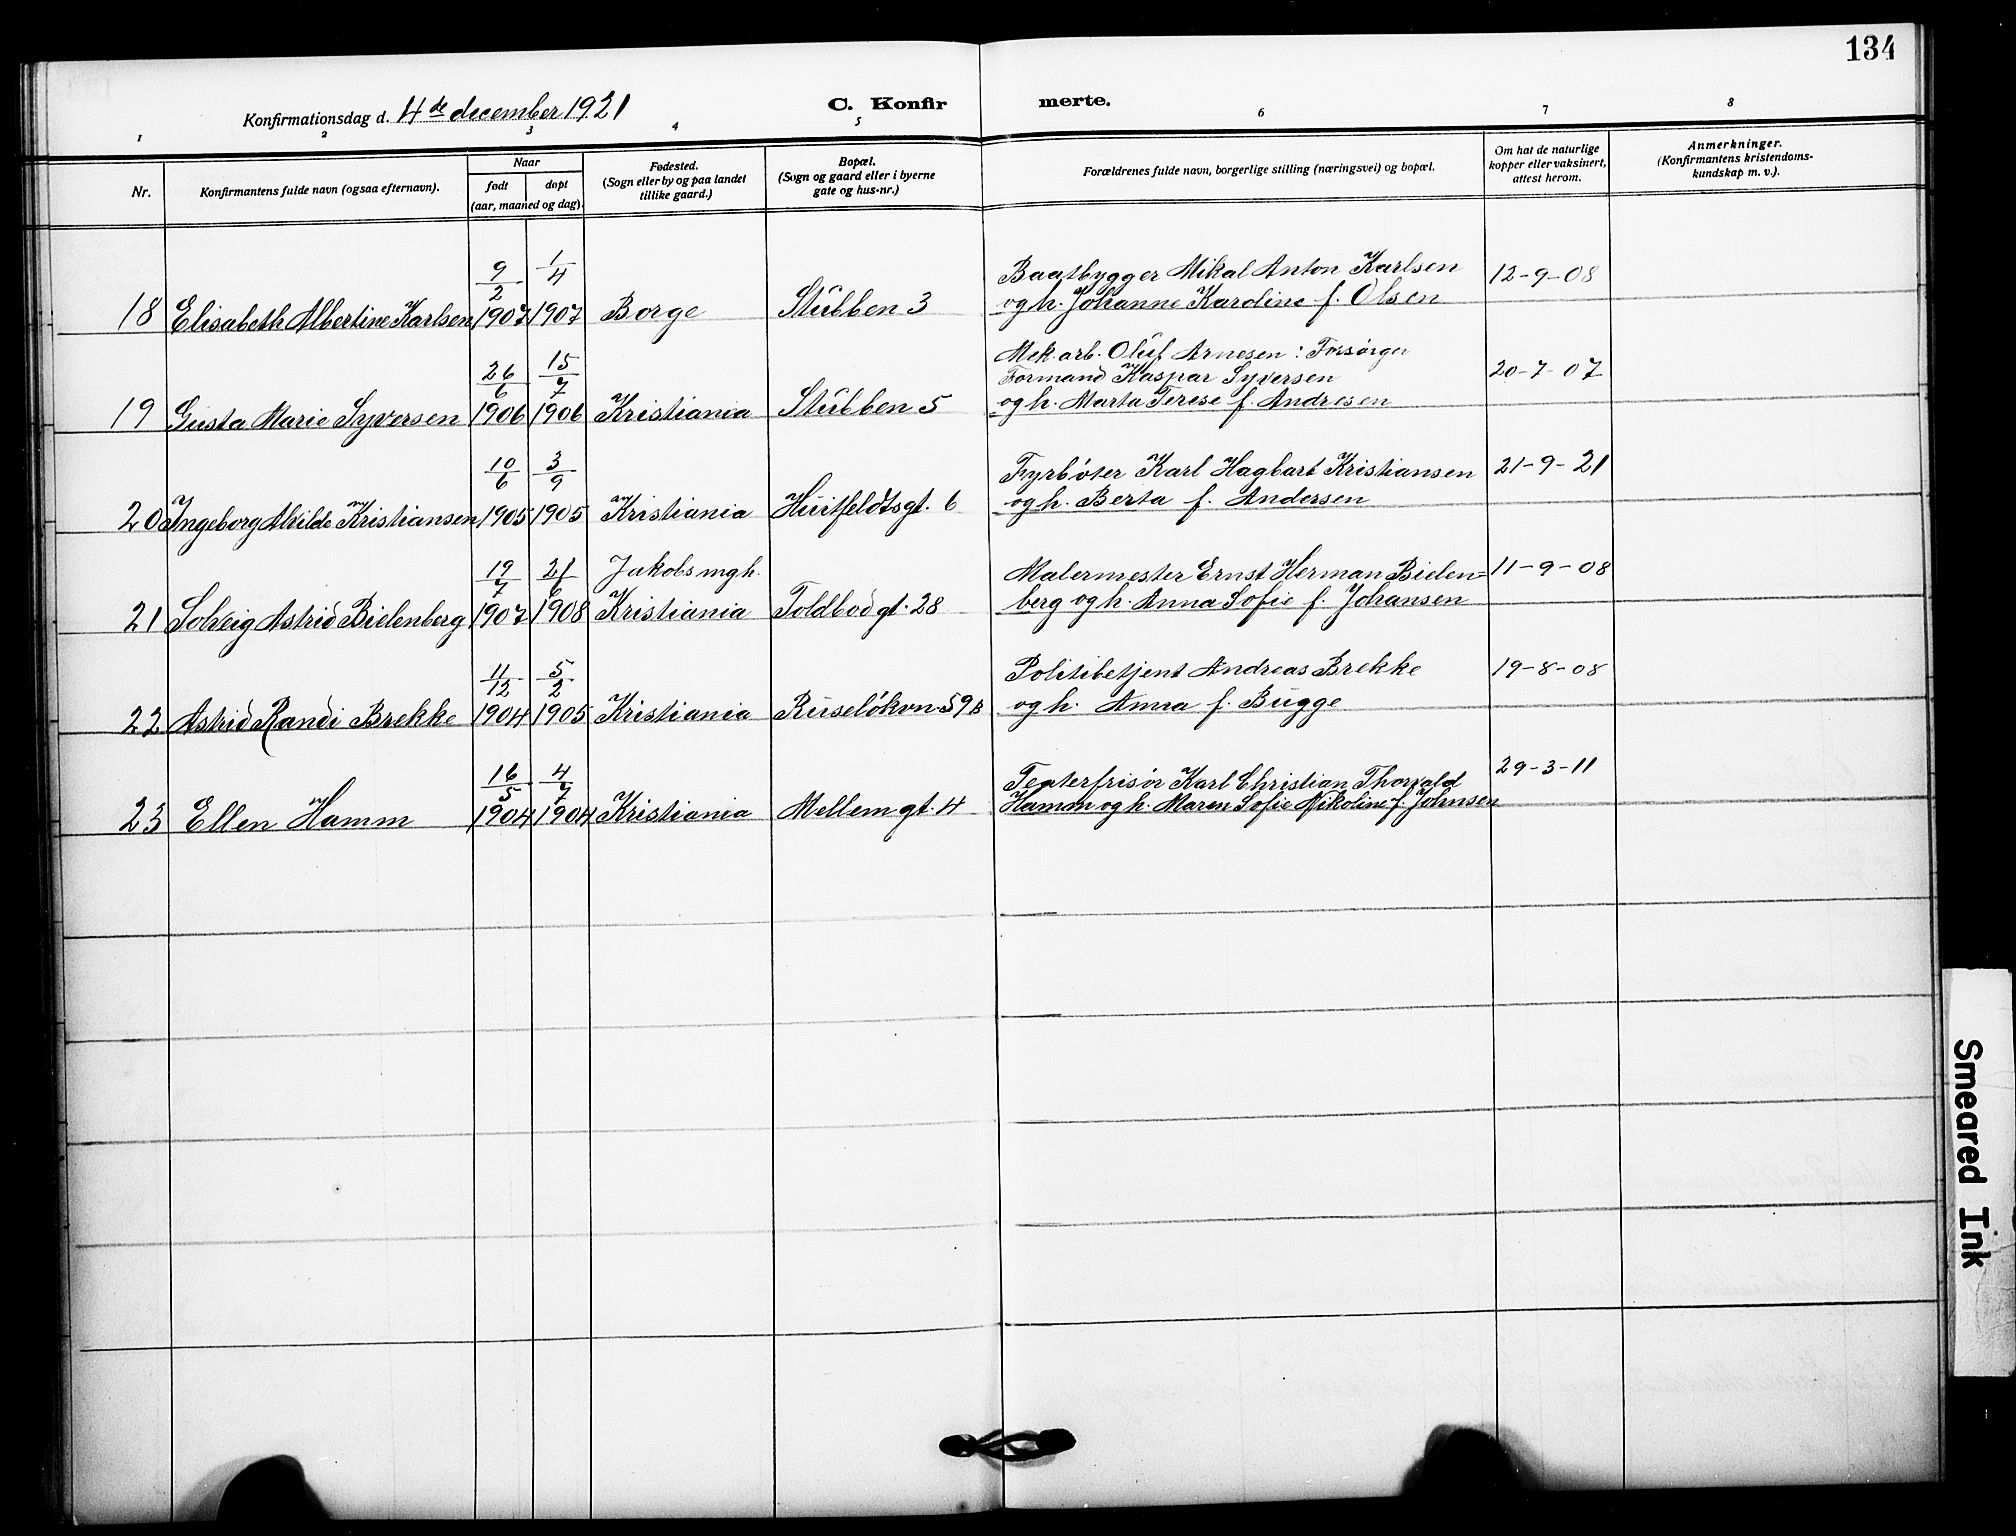 134
Konfirmationsdag d. 4de december 1921
C. Konfir merte.
1 2 3 4 5 6 7 8
Nr.
Konfirmantens fulde navn (ogsaa efternavn).
Naar
født døpt
(aar, maaned og dag).
Fødested.
(Sogn eller by og paa landet
tillike gaard.)
Bopæl.
(Sogn og gaard eller i byerne
gate og hus-nr.)
Forældrenes fulde navn, borgerlige stilling (næringsvei) og bopæl.
Om hat de naturlige
kopper eller vaksinert,
attest herom.
Anmerkninger.
(Konfirmantens kristendoms-
kundskap m. v.).
9/2 1/4 Baatbygger Mikal Anton Karlsen 12-9-08
18 Elisabeth Albertine Karlsen 1907 1907 Borge Stubben 3 og h. Johanne Karoline f. Olsen
Mek. arb. Oluf Arnesen: Forsørger
26/6 15/7 Formand Kaspar Syversen 20-7-07
19 Gusta Marie Syversen 1906 1906 Kristiania Stubben 5 og h. Marta Terese f. Andresen
10/6 3/9 Fyrbøter Karl Hagbart Kristiansen 21-9-21
20 Ingeborg Alvilde Kristiansen 1905 1905 Kristiania Huitfeldtsgt. 6 og h. Berta f. Andersen
19/7 21/6 Jakobs mgh. Malermester Ernst Herman Bielen= 11-9-08
21 Solveig Astrid Bielenberg 1907 1908 Kristiania Toldbodgt. 28 berg og h. Anna Sofie f. Johansen
11/12 5/2 Politibetjent Andreas Brekke 19-8-08
22 Astrid Randi Brekke 1904 1905 Kristiania Ruseløkvn. 59B og h. Anna f. Bugge
16/5 4/7 Teaterfrisør Karl Christian Thorvald 29-3-11
23 Ellen Hamm 1904 1904 Kristiania Mellemgt. 4 Hamm og h. Maren Sofie Nikoline f. Johnsen
Smeared Ink